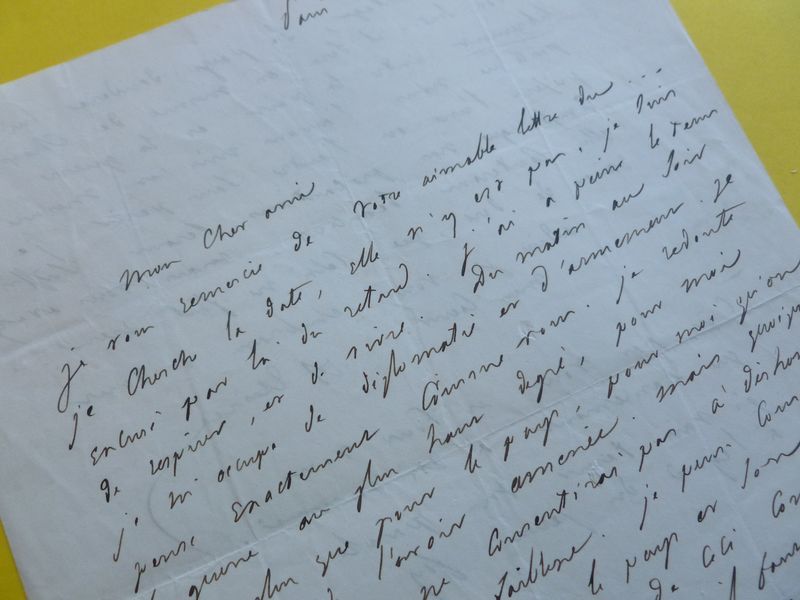 Paris
Mon cher ami
je vous remercie de votre aimable lettre du ...
je cherche la date, elle n'y est pas. je suis
excusé par là du retard. J'ai à peine le tems
de respirer, et de vivre. Du matin au soir
je m'occupe de diplomatie et d'armement. Je
pense exactement comme vous. je redoute
la guerre au plus haut degré, pour moi
plus que pour le pays, pour moi qu'on
l'avoir amenée. Mais quoique
ne consentirai pas à déshon
faiblesse. je peux com
le pays et son
de ceci con
il faut